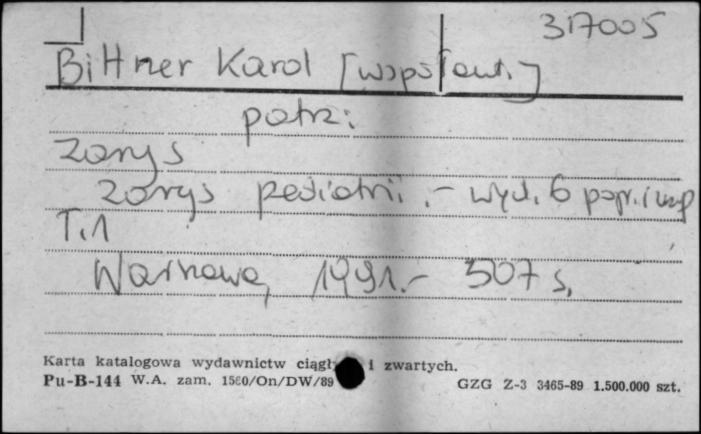 317005
Bittner Karol [współaut.]
patrz:
Zarys
Zarys pediatrii .- wyd. 6 popr. i uzup
T.1
Warszawa, 1991.- 507 s.
Karta katalogowa wydawnictw ciągł i zwartych.
Pu-B-144 W.A. zam. 1560/On/DW/89 GZG Z-3 3465-89 1.500.000 szt.